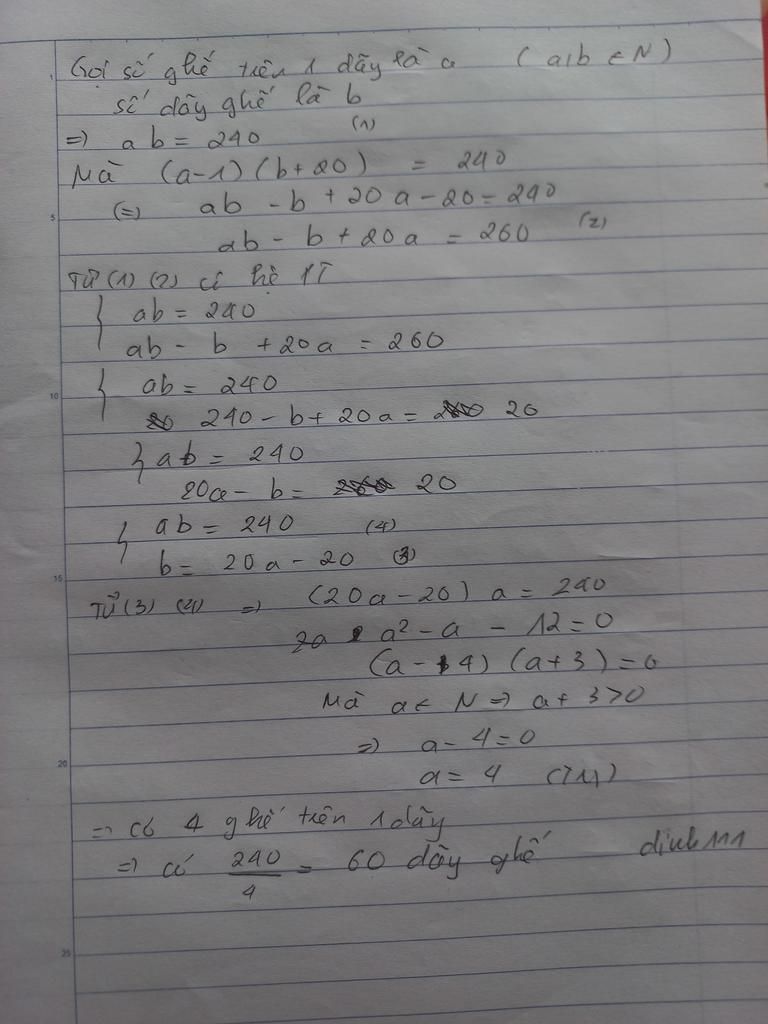 Gọi số ghế trên 1 dãy là a ( a,b ∈ N )
số dãy ghế là b
=> ab = 240 (1)
Mà (a-1)(b+20) = 240
(=) ab - b + 20a - 20 = 240
ab - b + 20a = 260 (2)
Từ (1) (2) có hệ PT
{ ab = 240
ab - b + 20a = 260
{ ab = 240
240 - b + 20a = 20
{ ab = 240
20a - b = 20
{ ab = 240 (4)
b = 20a - 20 (3)
Từ (3) (4) => (20a - 20) a = 240
a² - a - 12 = 0
(a - 4) (a + 3) = 0
Mà a ∈ N => a + 3 > 0
=> a - 4 = 0
a = 4 (TM)
=> có 4 ghế trên 1 dãy
=> có 240/4 = 60 dãy ghế